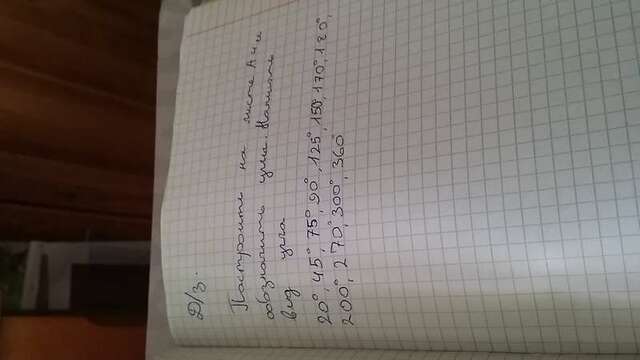 Д/з.
Построить на листе А4 и
обозначить углы. Написать
вид угла
20°, 45°, 75°, 90°, 125°, 150°, 170°, 180°,
200°, 270°, 300°, 360°